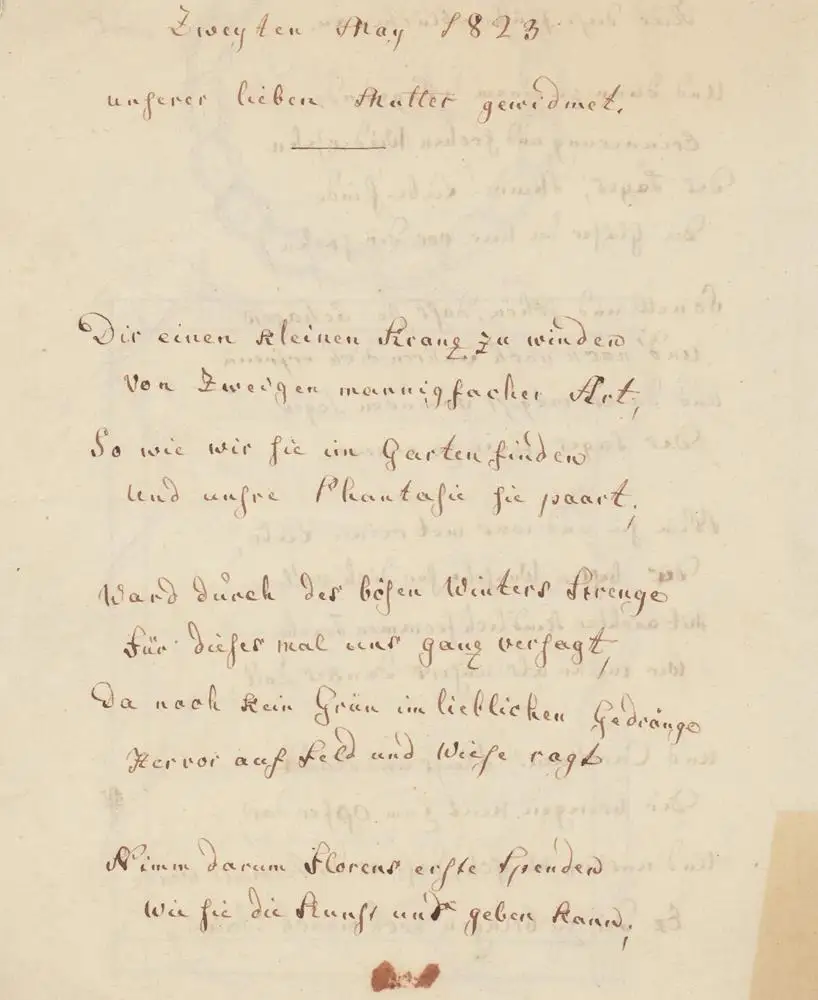 Zweyten May 1823
unserer lieben Mutter gewidmet.
Dir einen kleinen Kranz zu winden
von Zweigen mannigfacher Art,
So wie wir sie im Garten finden
Und unsre Phantasie sie paart,
Ward durch des bösen Winters Strenge
Für dieses mal uns ganz versagt,
Da noch kein Grün im lieblichen Gedränge
Hervor auf Feld und Wiese ragt
Nimm darum Florens erste Spenden
Wie sie die Kunst uns geben kann,